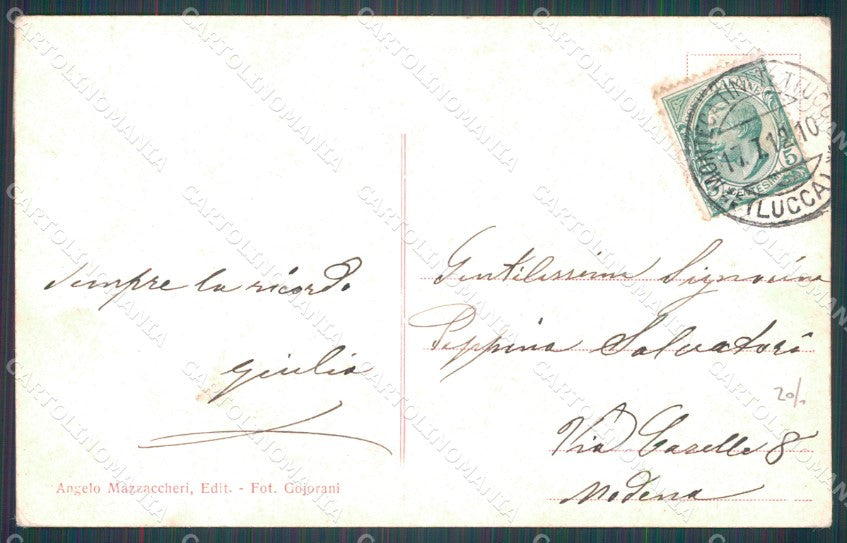 Sempre la ricordo
Giulia
Angelo Mazzaccheri, Edit. - Fot. Gojorani
17.1.12.10
(LUCCA)
5
Gentilissima Signorina
Peppina Salvatori
Via Caselle 8
Modena
20/.
CARTOLINOMANIA